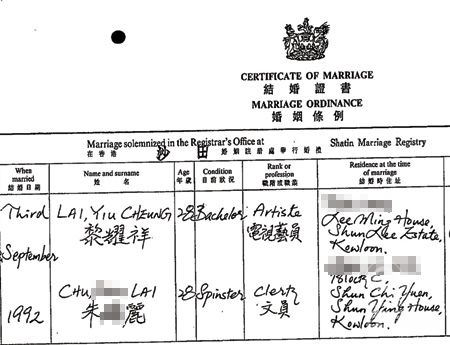 CERTIFICATE OF MARRIAGE
結婚證書
MARRIAGE ORDINANCE
婚姻條例
Marriage solemnized in the Registrar's Office at Shatin Marriage Registry
在香港 沙田 婚姻註冊處舉行婚禮
When married
結婚日期
Name and surname
姓名
Age
年歲
Condition
目前狀況
Rank or profession
職階或職業
Residence at the time of marriage
結婚時住址
Third September 1992
LAI, YIU CHEUNG
黎耀祥
28
Bachelor
Artiste
電視藝員
Lee Ming House,
Shun Lee Estate,
Kowloon.
CHU, LAI
朱 麗
28
Spinster
Clerk
文員
Block C,
Shun Chi Yuen,
Shun Ying House,
Kowloon.